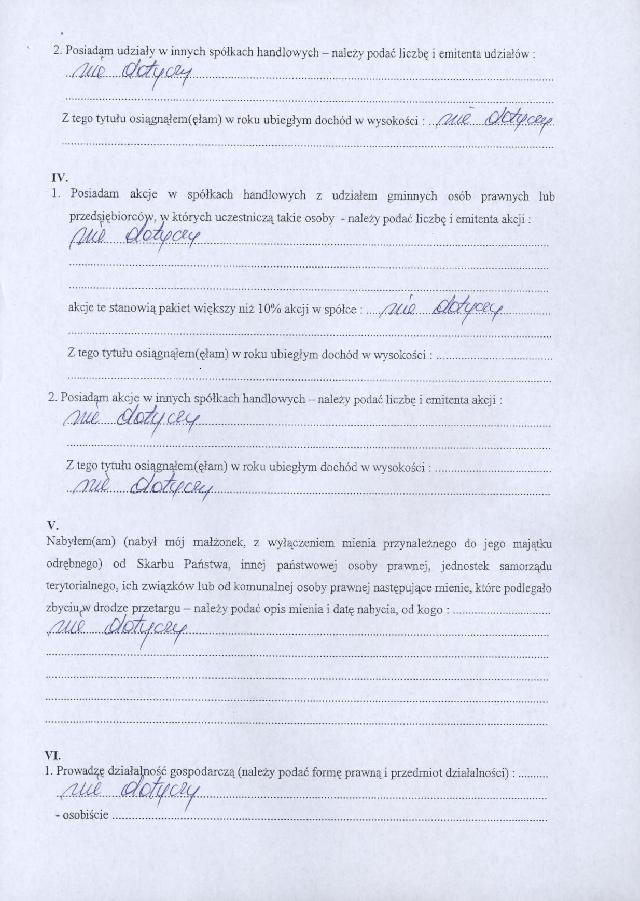 2. Posiadam udziały w innych spółkach handlowych – należy podać liczbę i emitenta udziałów :
nie dotyczy
Z tego tytułu osiągnąłem(ęłam) w roku ubiegłym dochód w wysokości : nie dotyczy
IV.
1. Posiadam akcje w spółkach handlowych z udziałem gminnych osób prawnych lub
przedsiębiorców, w których uczestniczą takie osoby - należy podać liczbę i emitenta akcji :
nie dotyczy
akcje te stanowią pakiet większy niż 10% akcji w spółce : nie dotyczy
Z tego tytułu osiągnąłem(ęłam) w roku ubiegłym dochód w wysokości :
2. Posiadam akcje w innych spółkach handlowych – należy podać liczbę i emitenta akcji :
nie dotyczy
Z tego tytułu osiągnąłem(ęłam) w roku ubiegłym dochód w wysokości :
nie dotyczy
V.
Nabyłem(am) (nabył mój małżonek, z wyłączeniem mienia przynależnego do jego majątku
odrębnego) od Skarbu Państwa, innej państwowej osoby prawnej, jednostek samorządu
terytorialnego, ich związków lub od komunalnej osoby prawnej następujące mienie, które podlegało
zbyciu w drodze przetargu – należy podać opis mienia i datę nabycia, od kogo :
nie dotyczy
VI.
1. Prowadzę działalność gospodarczą (należy podać formę prawną i przedmiot działalności) :
nie dotyczy
- osobiście